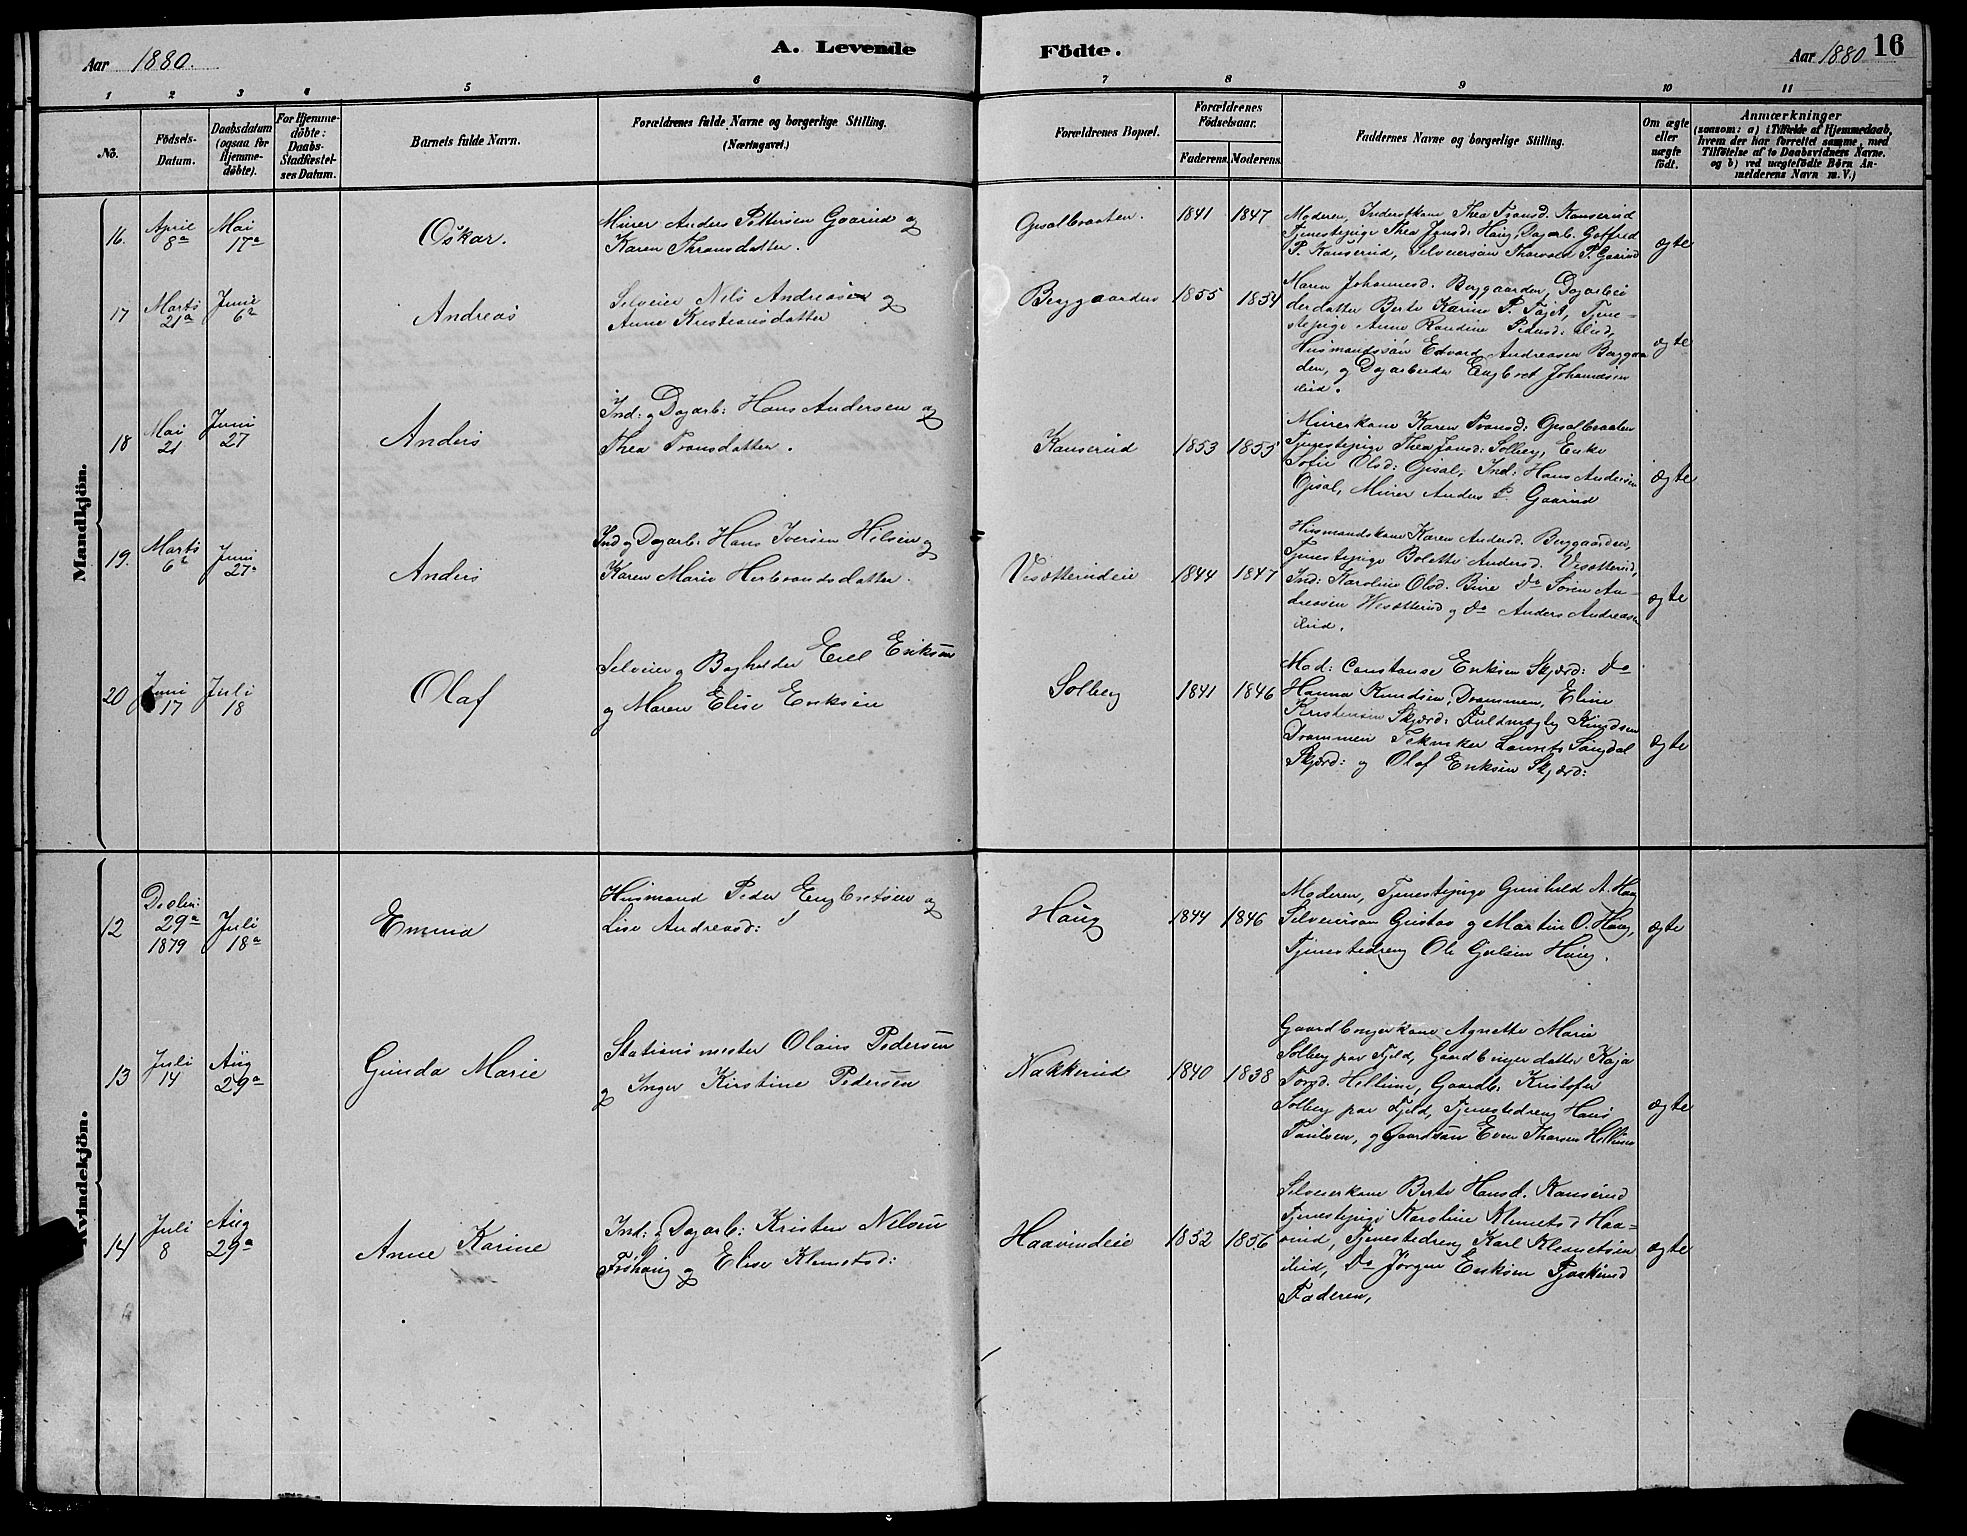 Aar 1880.
A. Levende Födte.
Aar 1880
16
1 2 3 4 5 6 7 8 9 10 11
No.
Födsels-
Datum.
Daabsdatum
(ogsaa för
Hjemme-
döbte).
For Hjemme-
döbte:
Daabs-
Stadfæstel-
ses Datum.
Barnets fulde Navn.
Forældrenes fulde Navne og borgerlige Stilling.
(Næringsvei.)
Forældrenes Bopæl.
Forældrenes
Födselsaar.
Faderens. Moderens.
Faddernes Navne og borgerlige Stilling.
Om ægte
eller
uægte
födt.
Anmærkninger
(saasom: a) i Tilfælde af Hjemmedaab,
hvem der har forrettet samme, med
Tilföielse af to Daabsvidners Navne.
og b) ved uægtefödte Börn An-
melderens Navn m. V.)
Mandkjön.
16. April
8a
Mai
17a
Oskar.
Murer Anders Pettersen Gaarud og
Karen Thronsdatter.
Opsalbraaten. 1841 1847
Moderen, Inderstkone Thea Transd. Kanserud
Tjenestepige Thea Jonsd: Haug, Dagarb. Gotfred
P. Kanserud, Selveiersøn Thorvald P. Gaarud
ægte
17 Marts
21a
Juni
6a
Andreas
Selveier Nils Andreasen og
Anne Kristiansdatter
Berggaarden 1855 1854
Maren Johannesd. Berggaarden, Dagarbei
derdatter Berte Karine P. Fojet, Tjene-
stepige Anne Randine Pedersd: Lied,
Husmandssøn Edvard Andreasen Berggaa
den, og Dagarbeider Engbret Johansen
ægte
18 Mai
21
Juni
27
Anders
Ind: og Dagarb: Hans Andersen og
Thea Transdatter.
Kanserud 1853 1855
Murerkone Karen Transd: Opsalbraaten
Tjenestepige Thea Jonsd: Solberg, Enke
Sofie Olsd: Opsal, Ind: Hans Andersen
Opsal, Murer Anders P. Gaarud
ægte
19. Marts
6a
Juni
27a
Anders
Ind og Dagarb: Hans Iversen Hilsen og
Karen Marie Herbrandsdatter.
Vesætterudeie 1844 1847
Husmandskone Karen Andersd. Berggaarden,
Tjenestepige Bolette Andersd. Vesætterud,
Ind: Karoline Olsd. Bure Do Søren An-
dreasen Wesætterud og Do Anders Andreasen
ægte
20 Juni
17
Juli
18
Olaf
Selveier og Bogholder Emil Eriksen
og Maren Elise Eriksen
Solberg 1841 1846
Mad: Constanse Eriksen Skjærd: Do
Hanna Knudsen, Drammen, Eline
Kristensen Skjærd: Fuldmægtig Knudsen
Drammen Tekniker Laurits Sangdal
Skjærd: og Olaf Eriksen Skjærd:
ægte
Kvindekjön.
12 Decbr:
29a
1879
Juli
18a
Emma
Husmand Peder Engbretsen og
Lise Andreasd:
Haug 1844 1846
Moderen, Tjenestepige Gunhild A. Haug
Selveiersøn Gustav og Martin O. Haug,
Tjenestedreng Ole Gulsen Haug.
ægte
13 Juli
14
Aug
29a
Gunda Marie
Stationsmester Olaus Pedersen
og Inger Kirstine Pedersen
Nakkerud 1840 1838
Gaardbrugerkone Agnette Marie
Solberg paa Fjeld, Gaardbrugerdatter Kaja
Torsd. Hellum, Gaardb. Kristofer
Solberg paa Fjeld, Tjenestedreng Hans
Paulsen, og Gaardsøn Even Thorsen Hellum
ægte
14 Juli
8
Aug
29a
Anne Karine
Ind: og Dagarb: Kristen Nilsen
Frøhaug og Elise Klemetsd:
Haavindeie 1852 1856
Selveierkone Berte Hansd. Kanserud
Tjenestepige Karoline Klemetsd Haa-
vind, Tjenestedreng Karl Klemetsen
Do Jørgen Eriksen
Faderen,
ægte